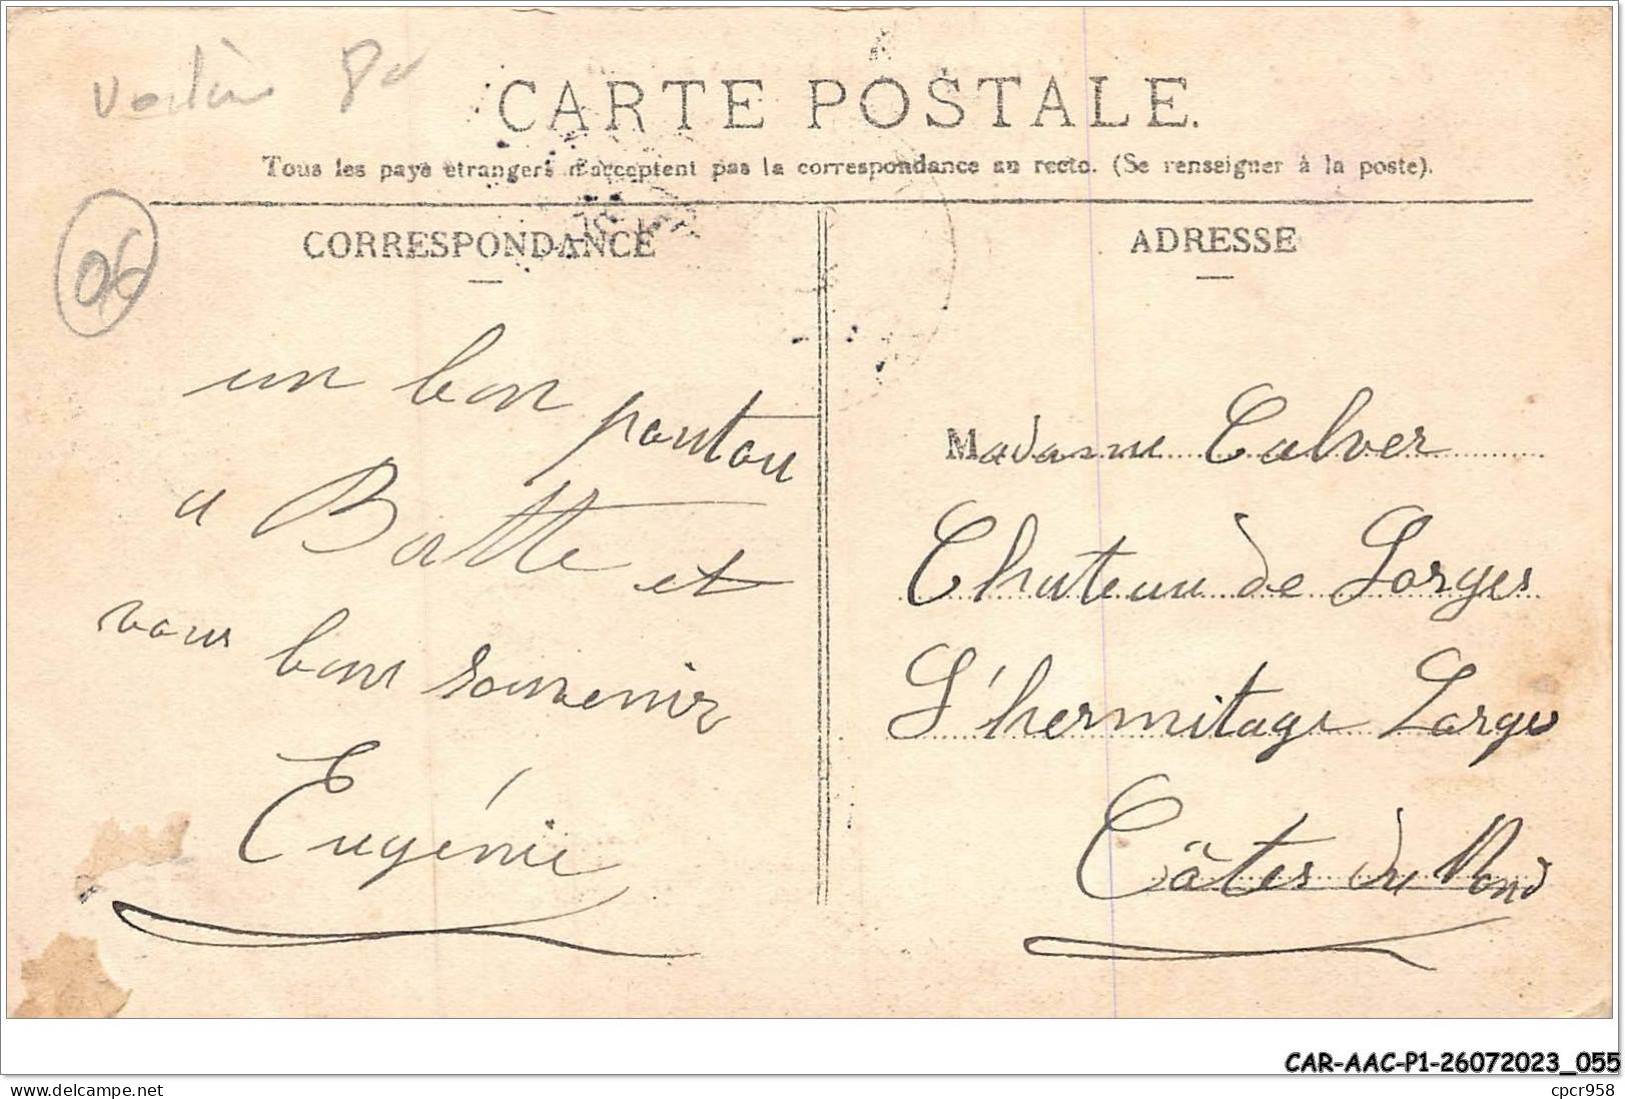 CARTE POSTALE.
Tous les pays étrangers n'acceptent pas la correspondance au recto. (Se renseigner à la poste).
06
CORRESPONDANCE
un bon poutou
a Batte et
vous bons souvenir
Eugénie
ADRESSE
Madame Calver
Chateau de Lorges
L'hermitage Lorges
Côtes du Nord
CAR-AAC-P1-26072023_055
www.delcampe.net
cpcr958